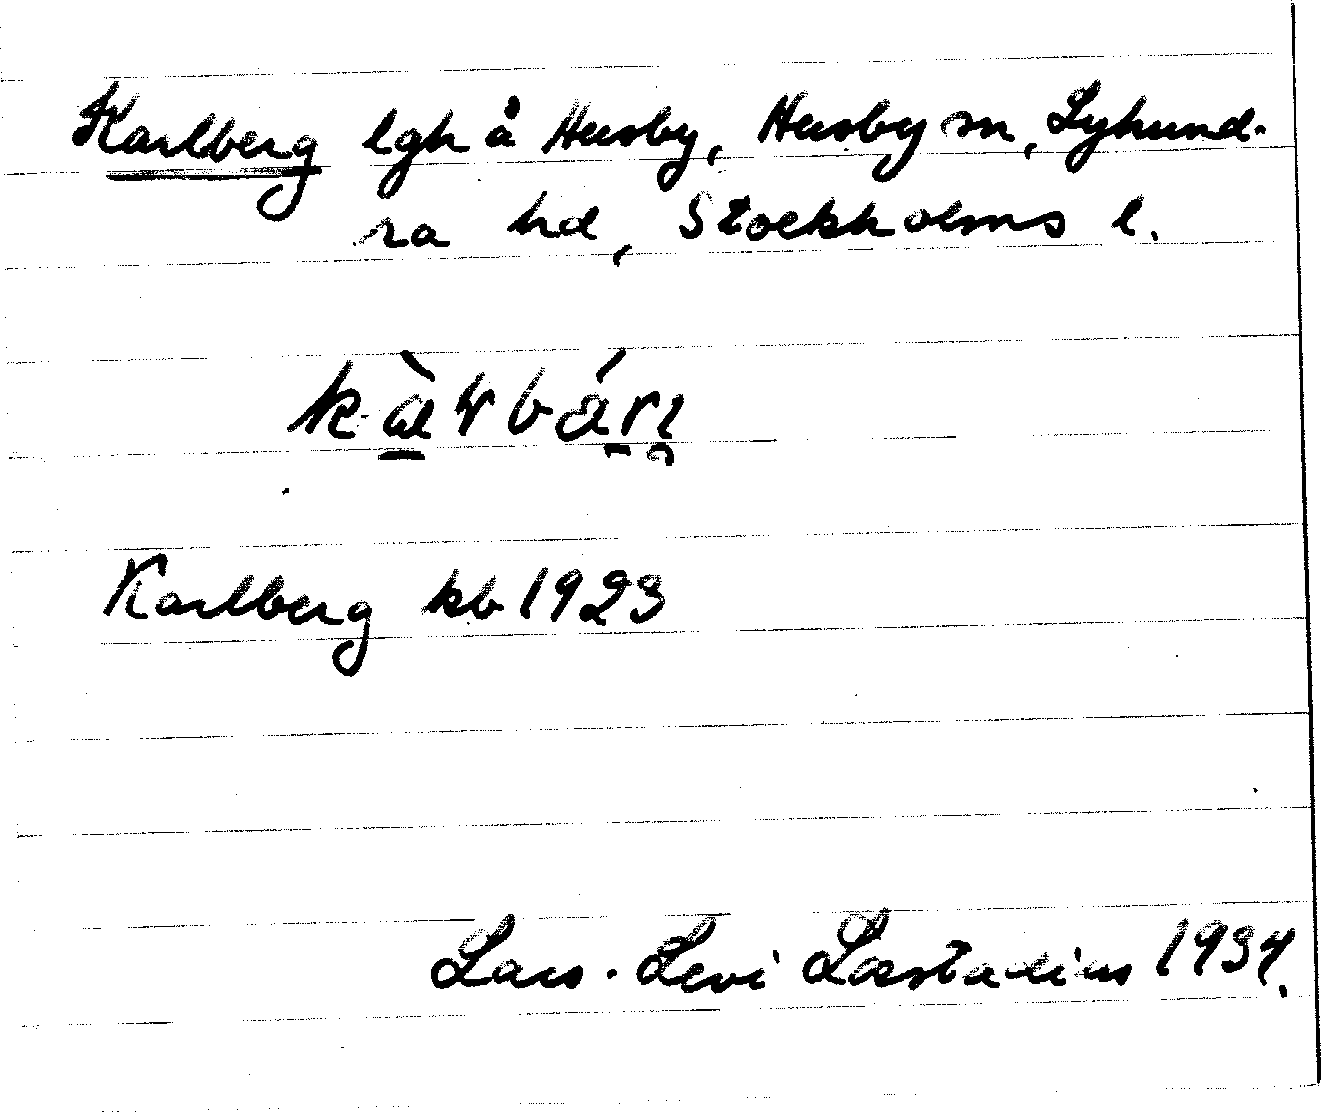 Karlberg lgh å Husby, Husby sn, Lyhund-
ra hd, Stockholms l.
Karlberg kb 1923
Lars-Levi Læstadius 1934.